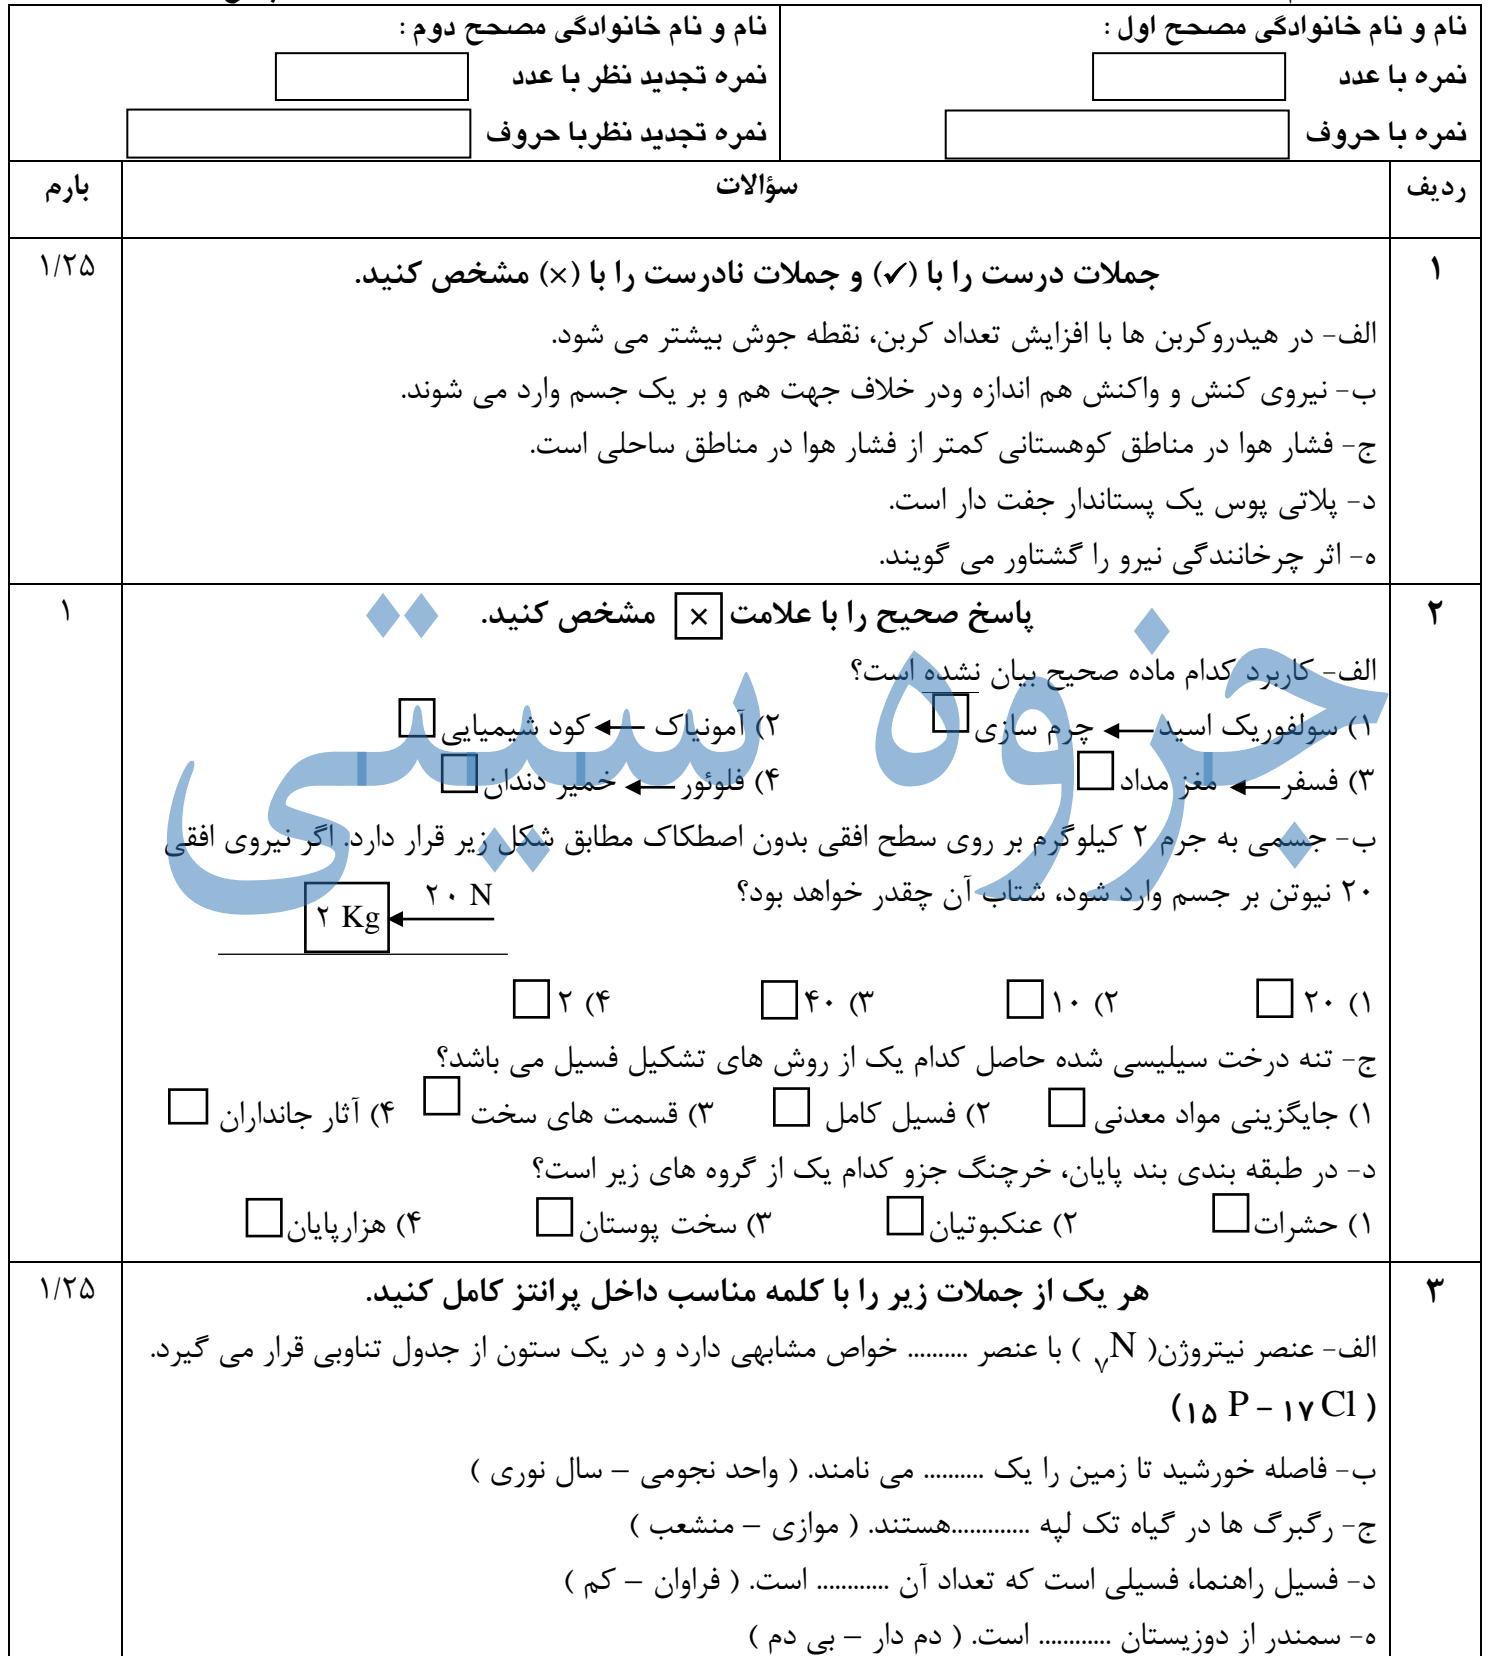 نام و نام خانوادگی مصحح اول :
نمره با عدد
نمره با حروف
نام و نام خانوادگی مصحح دوم :
نمره تجدید نظر با عدد
نمره تجدید نظربا حروف
ردیف
سؤالات
بارم
۱
جملات درست را با (✓) و جملات نادرست را با (×) مشخص کنید.
۱/۲۵
الف- در هیدروکربن ها با افزایش تعداد کربن، نقطه جوش بیشتر می شود.
ب- نیروی کنش و واکنش هم اندازه ودر خلاف جهت هم و بر یک جسم وارد می شوند.
ج- فشار هوا در مناطق کوهستانی کمتر از فشار هوا در مناطق ساحلی است.
د- پلاتی پوس یک پستاندار جفت دار است.
ه- اثر چرخانندگی نیرو را گشتاور می گویند.
۲
پاسخ صحیح را با علامت × مشخص کنید.
۱
الف- کاربرد کدام ماده صحیح بیان نشده است؟
۱) سولفوریک اسید ← چرم سازی ۲) آمونیاک ← کود شیمیایی
۳) فسفر ← مغز مداد ۴) فلوئور ← خمیر دندان
ب- جسمی به جرم ۲ کیلوگرم بر روی سطح افقی بدون اصطکاک مطابق شکل زیر قرار دارد. اگر نیروی افقی
۲۰ نیوتن بر جسم وارد شود، شتاب آن چقدر خواهد بود؟
۲۰ N
۲ Kg
۱) ۲۰ ۲) ۱۰ ۳) ۴۰ ۴) ۲
ج- تنه درخت سیلیسی شده حاصل کدام یک از روش های تشکیل فسیل می باشد؟
۱) جایگزینی مواد معدنی ۲) فسیل کامل ۳) قسمت های سخت ۴) آثار جانداران
د- در طبقه بندی بند پایان، خرچنگ جزو کدام یک از گروه های زیر است؟
۱) حشرات ۲) عنکبوتیان ۳) سخت پوستان ۴) هزارپایان
جزوه سیتی
۳
هر یک از جملات زیر را با کلمه مناسب داخل پرانتز کامل کنید.
۱/۲۵
الف- عنصر نیتروژن( ₇N ) با عنصر .......... خواص مشابهی دارد و در یک ستون از جدول تناوبی قرار می گیرد.
( ۱۷ Cl – ۱۵ P)
ب- فاصله خورشید تا زمین را یک .......... می نامند. ( واحد نجومی – سال نوری )
ج- رگبرگ ها در گیاه تک لپه .............هستند. ( موازی – منشعب )
د- فسیل راهنما، فسیلی است که تعداد آن ............ است. ( فراوان – کم )
ه- سمندر از دوزیستان ............ است. ( دم دار – بی دم )